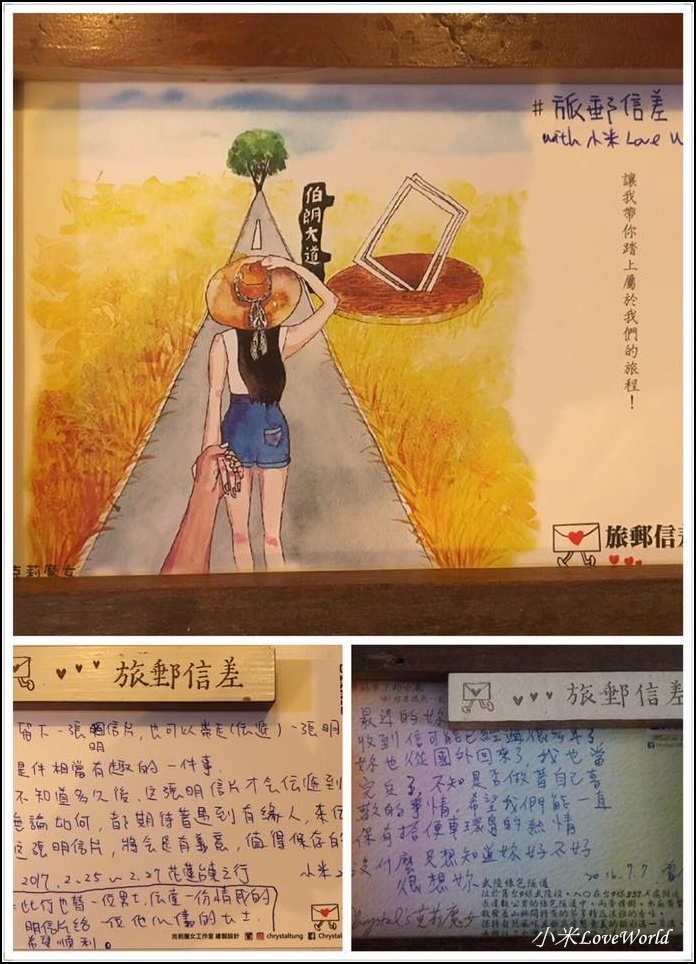 #旅郵信差
with 小米 Love W
伯朗大道
讓我帶你踏上屬於我們的旅程！
旅郵信差
克莉魔女
旅郵信差
留下一張明信片,也可以帶走(伝遞)一張明
是件相當有趣的一件事.
不知道多久後,這張明信片才会伝遞到
無論如何,都期待著遇到有緣人,來伝
這張明信片,將会是有義意,值得保存的
2017.2.25~2.27花蓮台東之行 小米
此行也替一位男士,伝達一份情感的
明信片給一位他心儀的女士.
希望順利。
克莉魔女工作室 繪製設計 chrystaltung Chrystal
旅郵信差
最近的妳
收到信可能已經過很多年了
妳也從國外回來了,我也當
完兵了,不知是否做著自己喜
歡的事情.希望我們能一直
保有搭便車環島的熱情
沒什麼只想知道妳好不好
很想妳
2016.7.7
武陵綠色隧道
Chrystal's 克莉魔女
小米LoveWorld